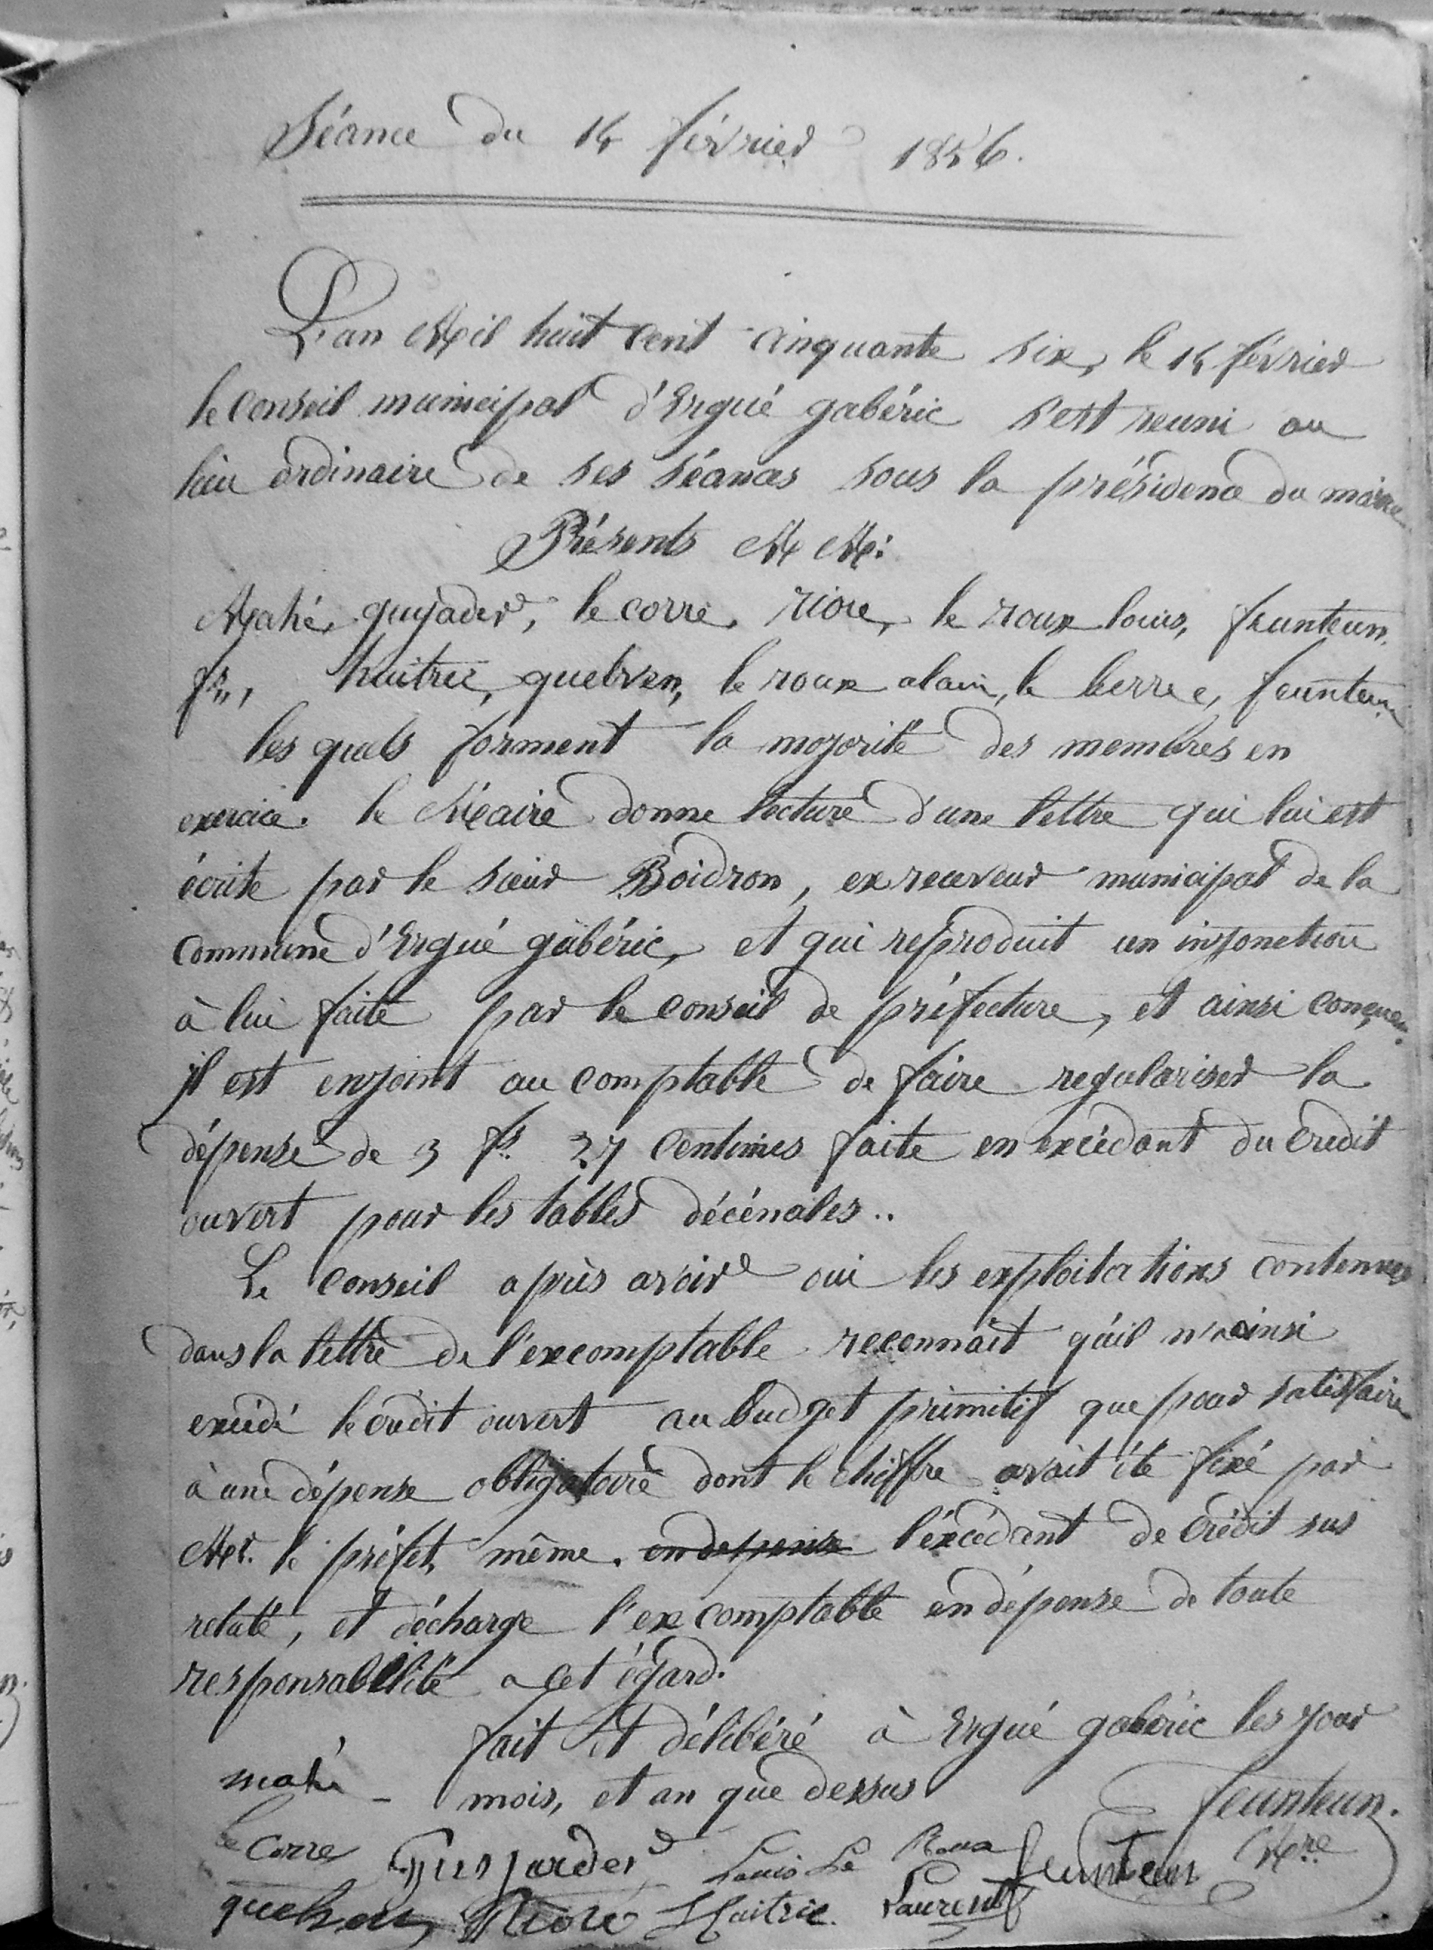 Séance du 15 février 1856.
L'an Mil huit cent cinquante six, le 15 février
le conseil municipal d'Ergué gabéric s'est reuni au
lieu ordinaire de ses séances sous la présidence du maire
Présents MM:
Mahé, guyader, le corre, riou, le roux louis, feunteun
fs, huitric, quelven, le roux alain, le berre, feunteun
les quels forment la majorité des membres en
exercice. le Maire donne lecture d'une lettre qui lui est
écrite par le sieur Boidron, ex receveur municipal de la
commune d'Ergué gabéric, et qui reproduit un injonction
à lui faite par le conseil de préfecture, et ainsi conçue.
il est enjoint au comptable de faire regulariser la
dépense de 3 fs 37 centimes faite en excédant du credit
ouvert pour les tables décénales..
Le conseil après avoir oui les exploitations contenues
dans la lettre de l'excomptable reconnait qu'il n'a ainsi
excédé le crédit ouvert au budget primitif que pour satisfaire
à une dépense obligatoire dont le chiffre avait été fixé par
Mr. le préfet même. en depense l'éxcédant de crédit sus
relaté, et décharge l'ex comptable en dépense de toute
responsabilité a cet égard.
fait et délibéré à Ergué gabéric les jour
mahé mois, et an que dessus feunteun.
le Corre Guyader Louis Le Roux feunteun Mre
quelven Riou Huitric Laurent